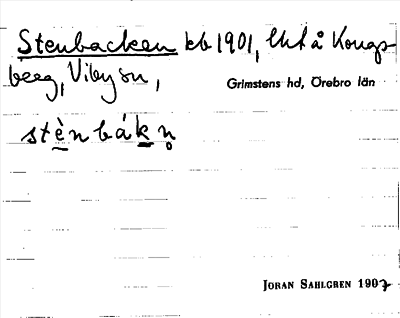 Stenbacken kb 1901, lht å Kongs-
berg, Viby sn,
Grimstens hd, Örebro län
stènbákn̥
JORAN SAHLGREN 1907